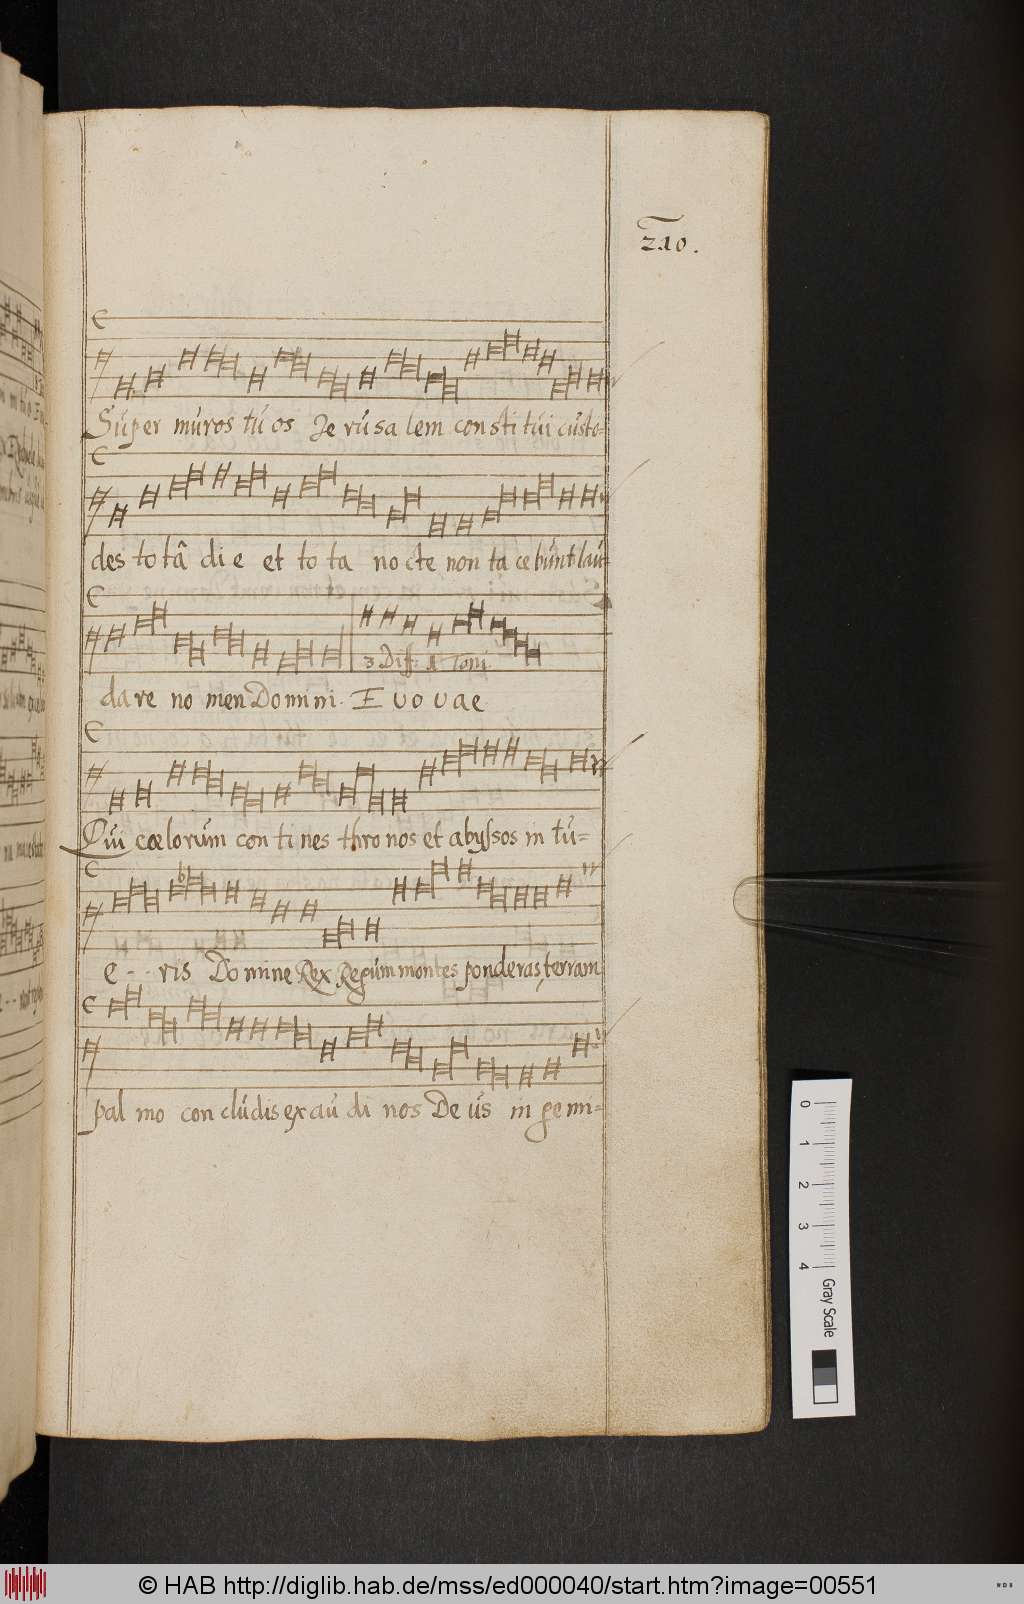 210.
Super muros tu os Je ru sa lem con sti tui custo=
des to tâ di e et to ta no cte non ta ce bunt lau=
3 Diff: 1 Toni
da re no men Do mi ni. E u o u a e
Qui cœ lo rum con ti nes thro nos et abyssos in tu=
b
e - - ris Do mine Rex Regum montes ponderas, terram
pal mo con cludis ex au di nos De us in ge mi=
0 1 2 3 4 Gray Scale
© HAB http://diglib.hab.de/mss/ed000040/start.htm?image=00551